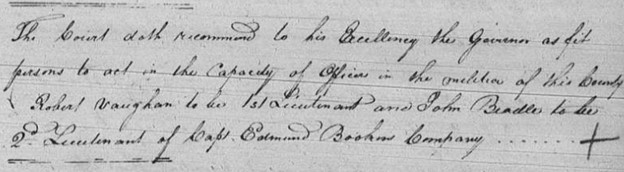 The Court doth recommend to his Excellency the Governor as fit
persons to act in the Capacity of Officers in the militia of this County
Robert Vaughan to be 1st Lieutenant and John Beadle to be
2d. Lieutenant of Capt. Edmund Bookers Company .......